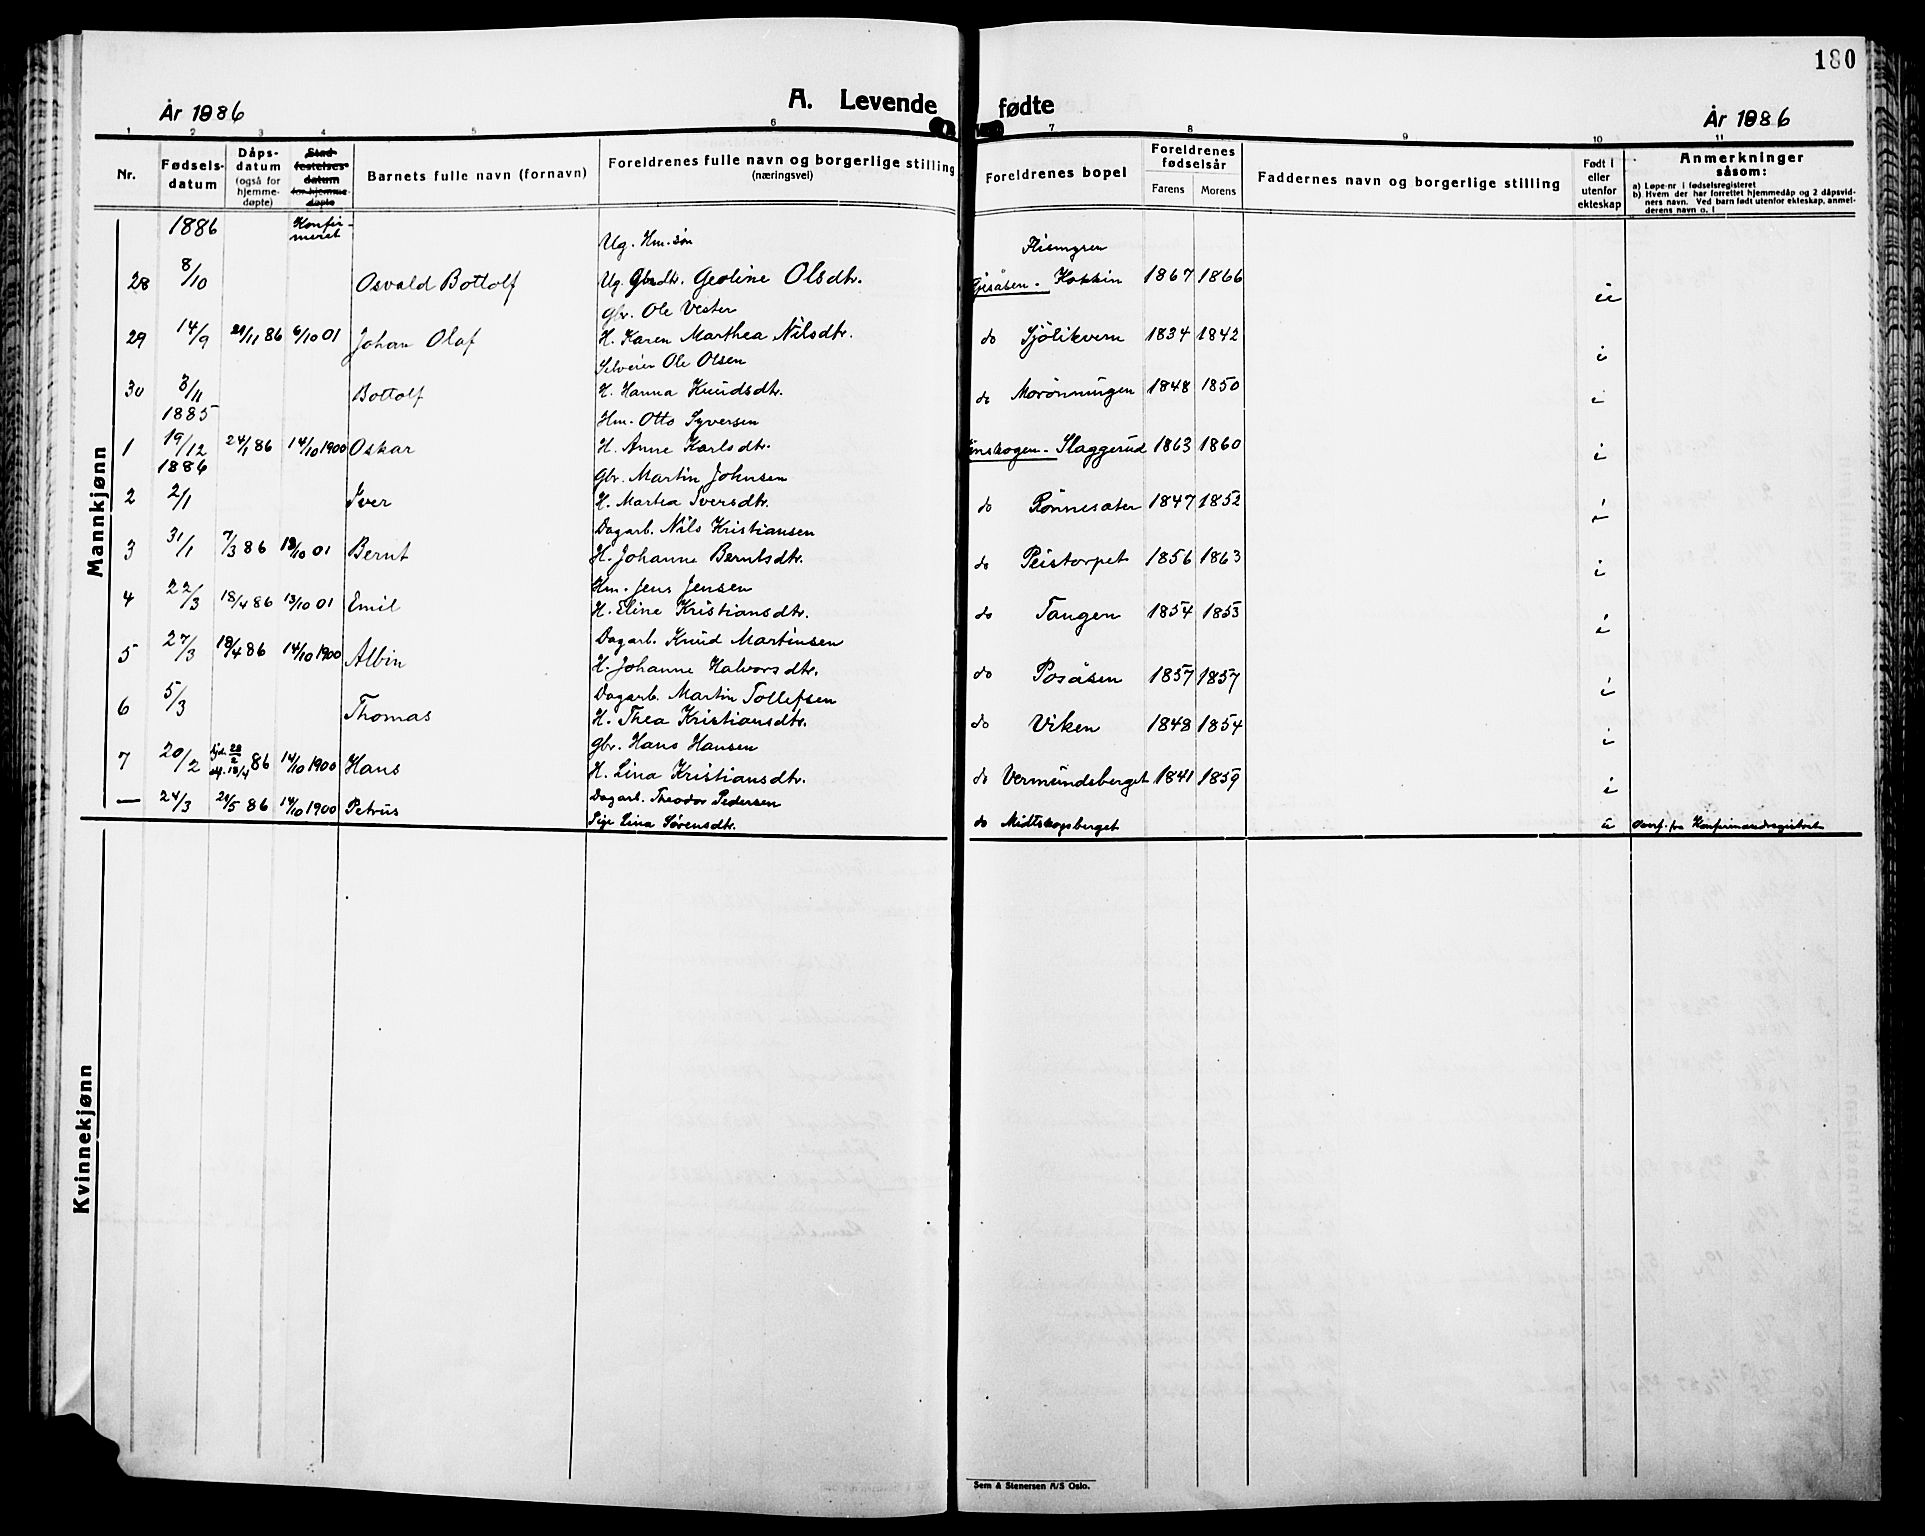 180
År 1886
A. Levende fødte
År 1886
1 2 3 4 5 6 7 8 9 10 11
Nr.
Fødsels-
datum
Dåps-
datum
(også for
hjemme-
døpte)
Stad-
festelses-
datum
for hjemme-
døpte
Barnets fulle navn (fornavn)
Foreldrenes fulle navn og borgerlige stilling
(næringsvei)
Foreldrenes bopel
Foreldrenes
fødselsår
Farens Morens
Faddernes navn og borgerlige stilling
Født i
eller
utenfor
ekteskap
Anmerkninger
såsom:
a) Løpe-nr i fødselsregisteret
b) Hvem der har forrettet hjemmedåp og 2 dåpsvid-
ners navn. Ved barn født utenfor ekteskap, anmel-
derens navn o. l
Mannkjønn
1886 Konfir-
meret
Ug. Hm. søn
28 8/10 Osvald Bottolf Ug. Gbrdtr. Geoline Olsdtr. Gjesåsen. Kokkin 1867 1866
Gbr. Ole Vester
29 14/9 21/11 86 6/10 01 Johan Olaf H. Karen Marthea Nilsdtr. do Sjölikvern 1834 1842 i
Selveier Ole Olsen
30 3/11 Bottolf H. Hanna Knudsdtr. do Morönningen 1848 1850 i
1885 Hm. Otto Syversen
1 19/12 24/1 86 14/10 1900 Oskar H. Anne Karlsdtr. Slaggerud 1863 1860 i
1886 Gbr. Martin Johnsen
2 2/1 Iver H. Martea Iversdtr. do Rönnesäter 1847 1852 i
Dagarb. Nils Kristiansen
3 31/1 7/3 86 13/10 01 Bernt H. Johanne Berntsdtr. do Peistorpet 1856 1863 i
Hm. Jens Jensen
4 22/3 18/4 86 13/10 01 Emil H. Eline Kristiansdtr. do Tangen 1854 1853 i
Dagarb. Knud Martinsen
5 27/3 18/4 86 14/10 1900 Albin H. Johanne Halvorsdtr. do Posåsen 1857 1857 i
Dagarb. Martin Tollefsen
6 5/3 Thomas H. Thea Kristiansdtr. do Viken 1848 1854 i
Gbr. Hans Hansen
7 20/2 86 14/10 1900 Hans H. Lina Kristiansdtr. do Vermundsberget 1841 1859 i
Dagarb. Theodor Pedersen
— 24/3 24/5 86 14/10 1900 Petrus Pige Lina Sörensdtr. do Midtskogsberget u Overf. fra Konfirmandregistret
Kvinnekjønn
Sem & Stenersen A/S Oslo.